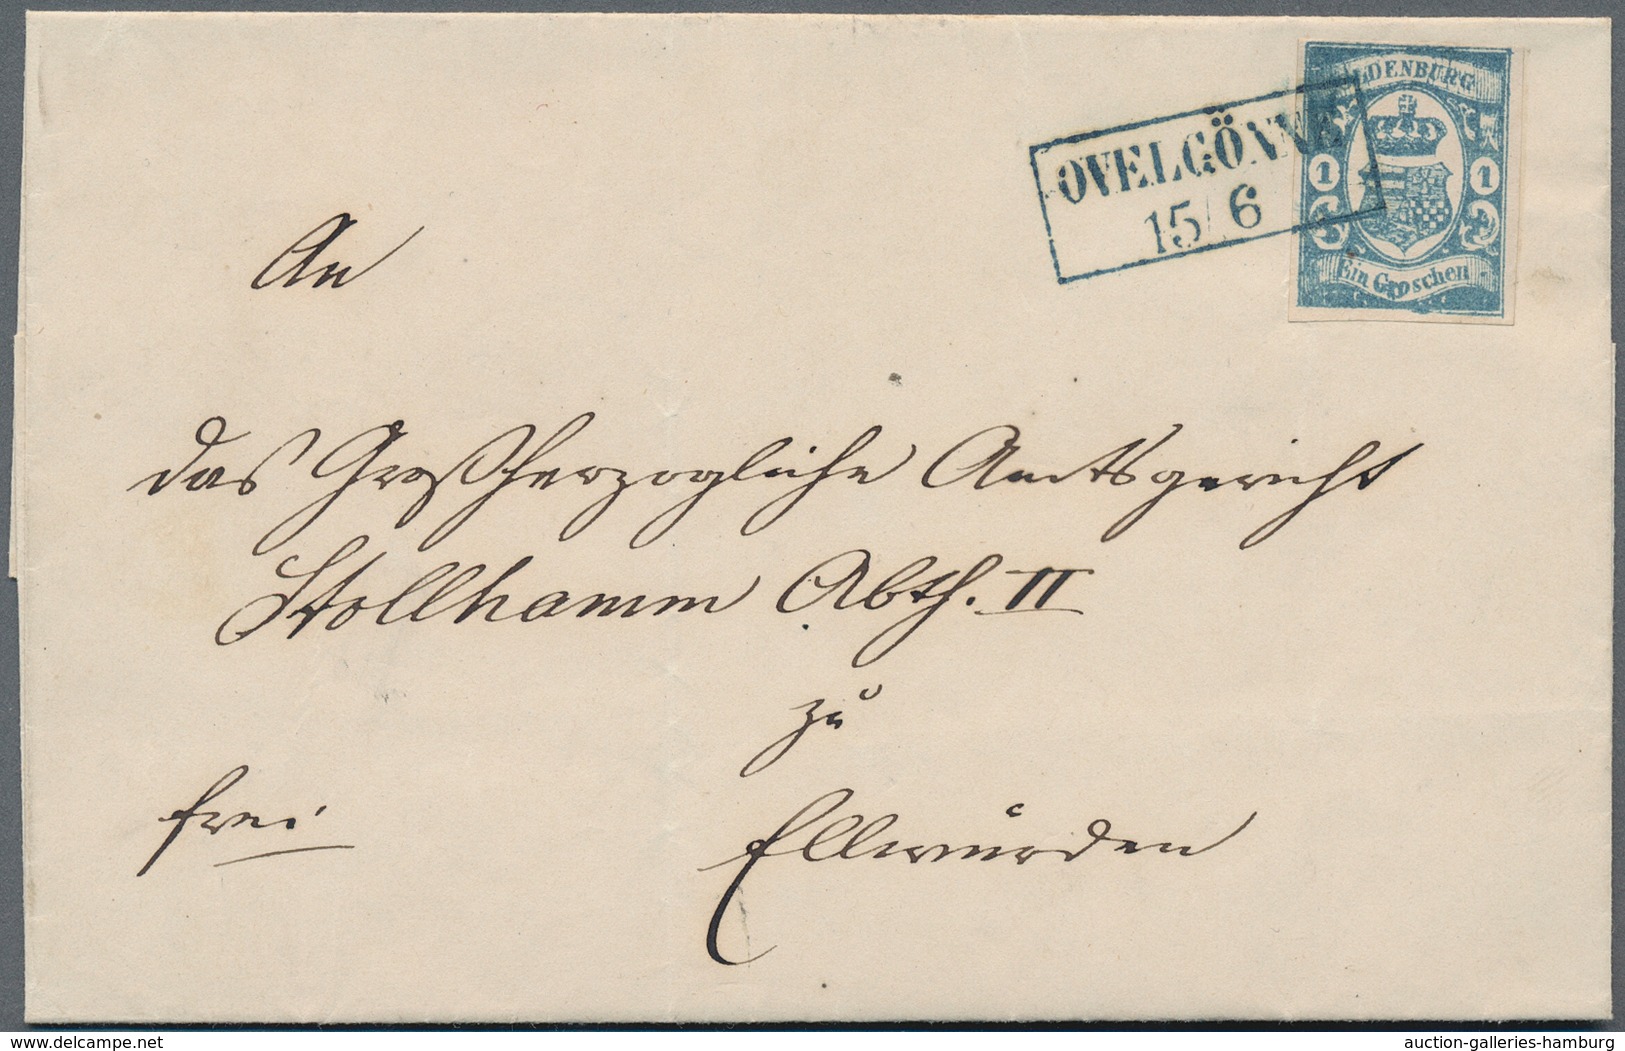 OLDENBURG
OVELGÖNNE
15/6
1 1
Ein Groschen
An
das Großherzogliche Amtsgericht
Stollhamm Abth. II
zu
frei
Ellwürden
delcampe.net
auction-galleries-hamburg